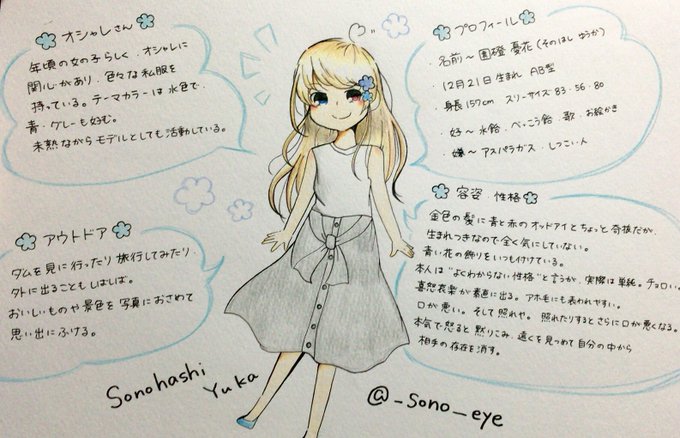 オシャレさん
年頃の女の子らしく、オシャレに
関心があり、色々な私服を
持っている。テーマカラーは水色で、
青・グレーも好む。
未熟ながらモデルとしても活動している。
プロフィール
・名前〜園橙 憂花(そのはし ゆうか)
・12月21日生まれ AB型
・身長157cm スリーサイズ83・56・80
・好〜水飴・べっこう飴・歌・お絵かき
・嫌〜アスパラガス・しつこい人
アウトドア
ダムを見に行ったり旅行してみたり、
外に出ることもしばしば。
おいしいものや景色を写真におさめて
思い出にふける。
容姿 性格
金色の髪に青と赤のオッドアイとちょっと奇抜だが、
生まれつきなので全く気にしていない。
青い花の飾りをいつも付けている。
本人は"よくわからない性格"と言うが、実際は単純。チョロい。
喜怒哀楽が素直に出る。アホ毛にも表われやすい。
口が悪い。そして照れや。照れたりするとさらに口が悪くなる。
本気で怒ると黙りこみ、遠くを見つめて自分の中から
相手の存在を消す。
Sonohashi
Yuka
@_sono_eye